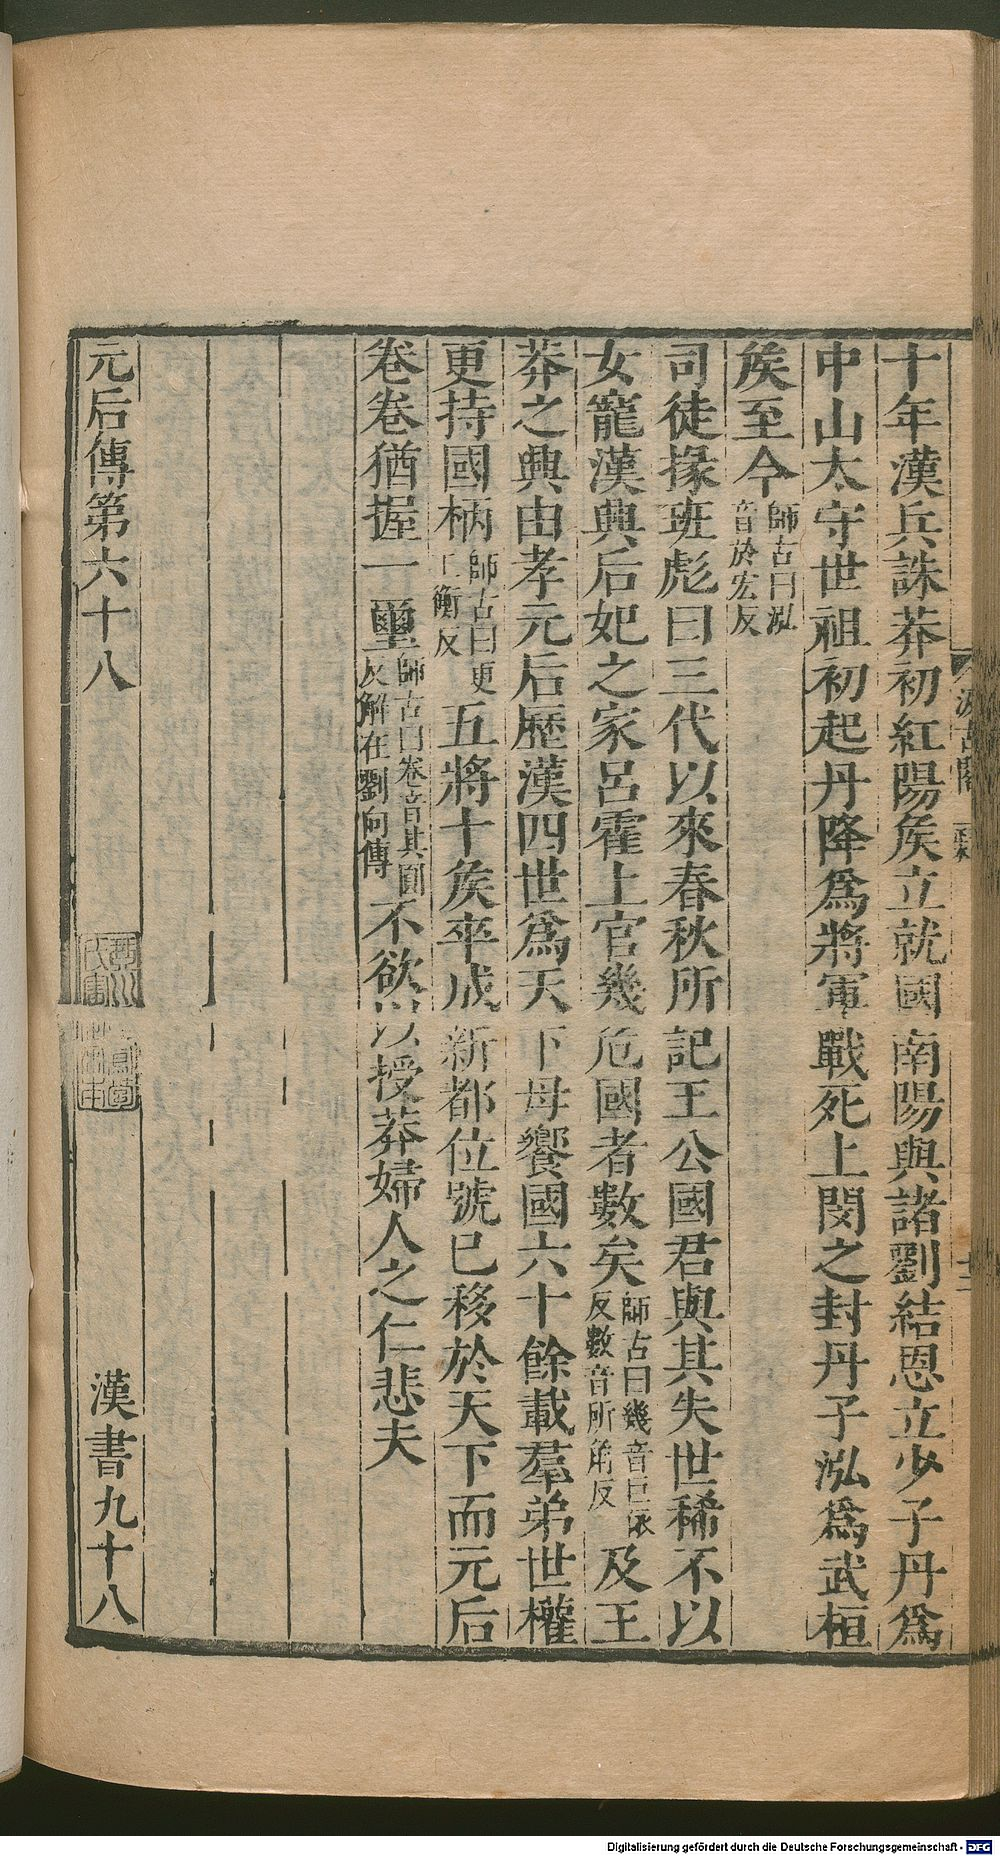 十年漢兵誅莽初紅陽矦立就國南陽與諸劉結恩立少子丹爲
中山太守世祖初起丹降爲將軍戰死上閔之封丹子泓爲武桓
矦至今師古曰泓音於宏反
司徒掾班彪曰三代以來春秋所記王公國君與其失世稀不以
女寵漢興后妃之家呂霍上官幾危國者數矣師古曰幾音巨依反數音所角反及王
莽之興由孝元后歷漢四世爲天下母饗國六十餘載羣弟世權
更持國柄師古曰更工衡反五將十矦卒成新都位號已移於天下而元后
卷卷猶握一璽師古曰卷音其圓反解在劉向傳不欲以授莽婦人之仁悲夫
元后傳第六十八 漢書九十八
Digitalisierung gefördert durch die Deutsche Forschungsgemeinschaft - DFG